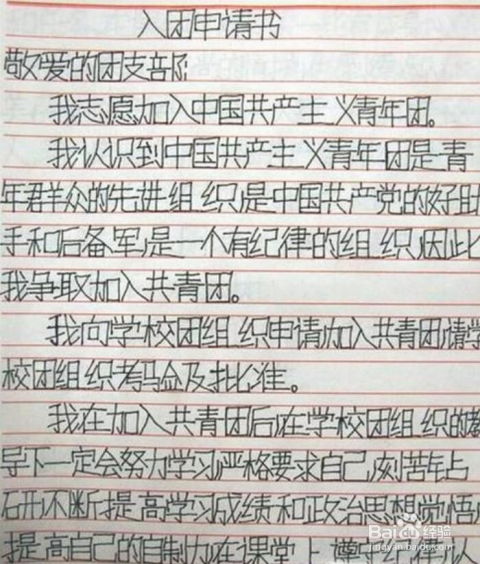 入团申请书
敬爱的团支部:
我志愿加入中国共产主义青年团。
我认识到中国共产主义青年团是青
年群众的先进组织,是中国共产党的好助
手和后备军,是一个有纪律的组织,因此
我争取加入共青团。
我向学校团组织申请加入共青团,请学
校团组织考验及批准。
我在加入共青团后,在学校团组织的教
导下一定会努力学习,严格要求自己,刻苦钻
研,不断提高学习成绩和政治思想觉悟,
提高自己的自制力,在课堂上遵守纪律,认
Baidu经验
jingyan.baidu.com